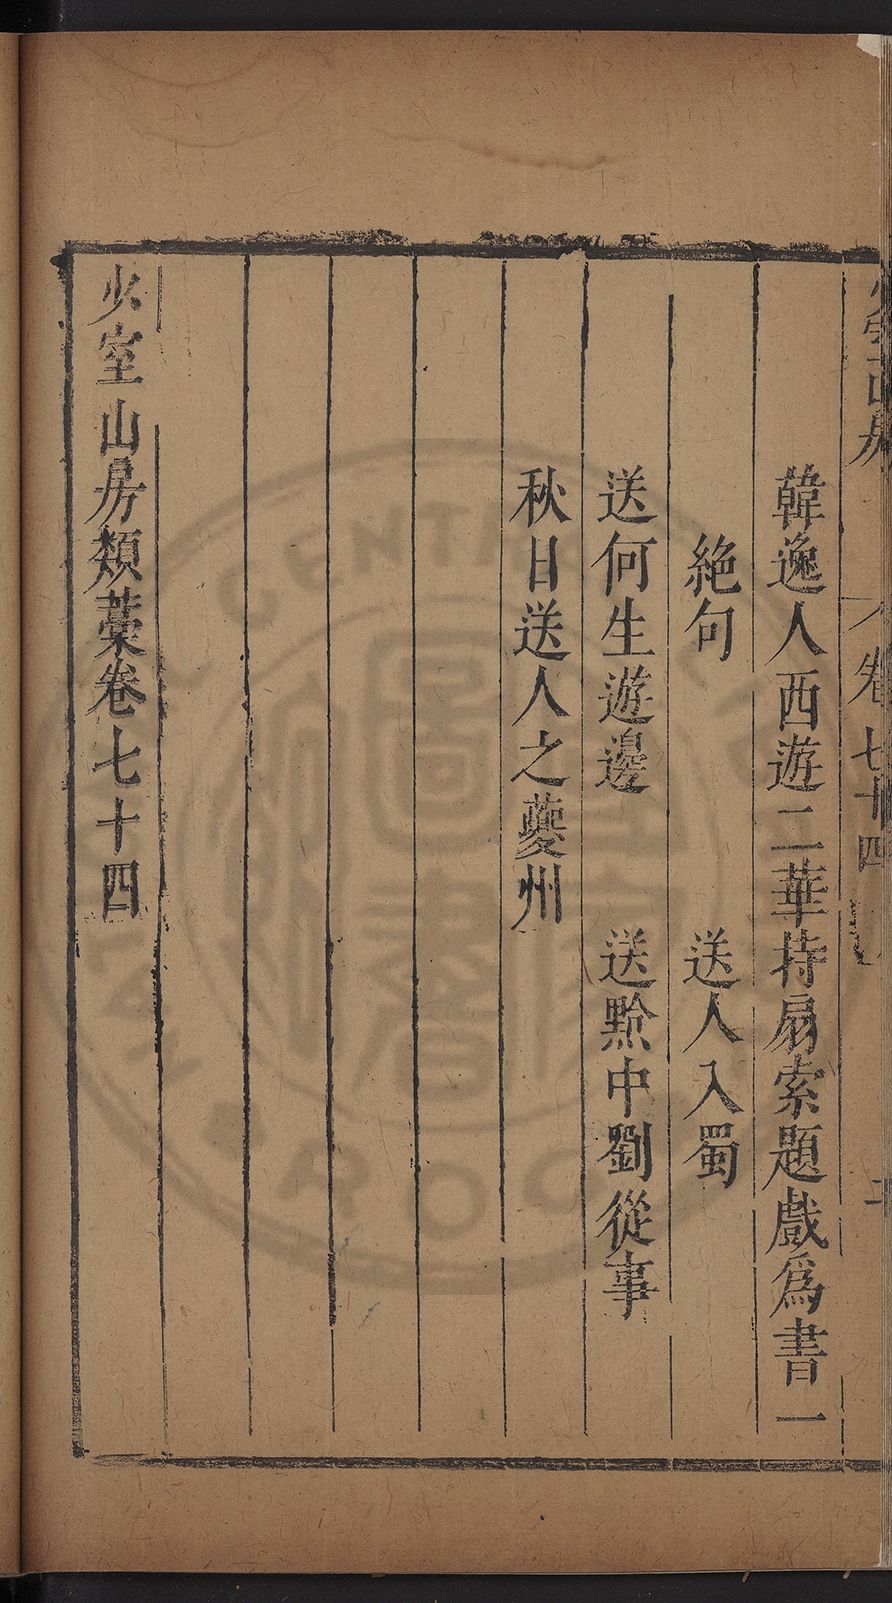 韓逸人西遊二華持扇索題戲爲書一
絶句　送人入蜀
送何生遊邊　送黔中劉從事
秋日送人之夔州
少室山房類藁卷七十四